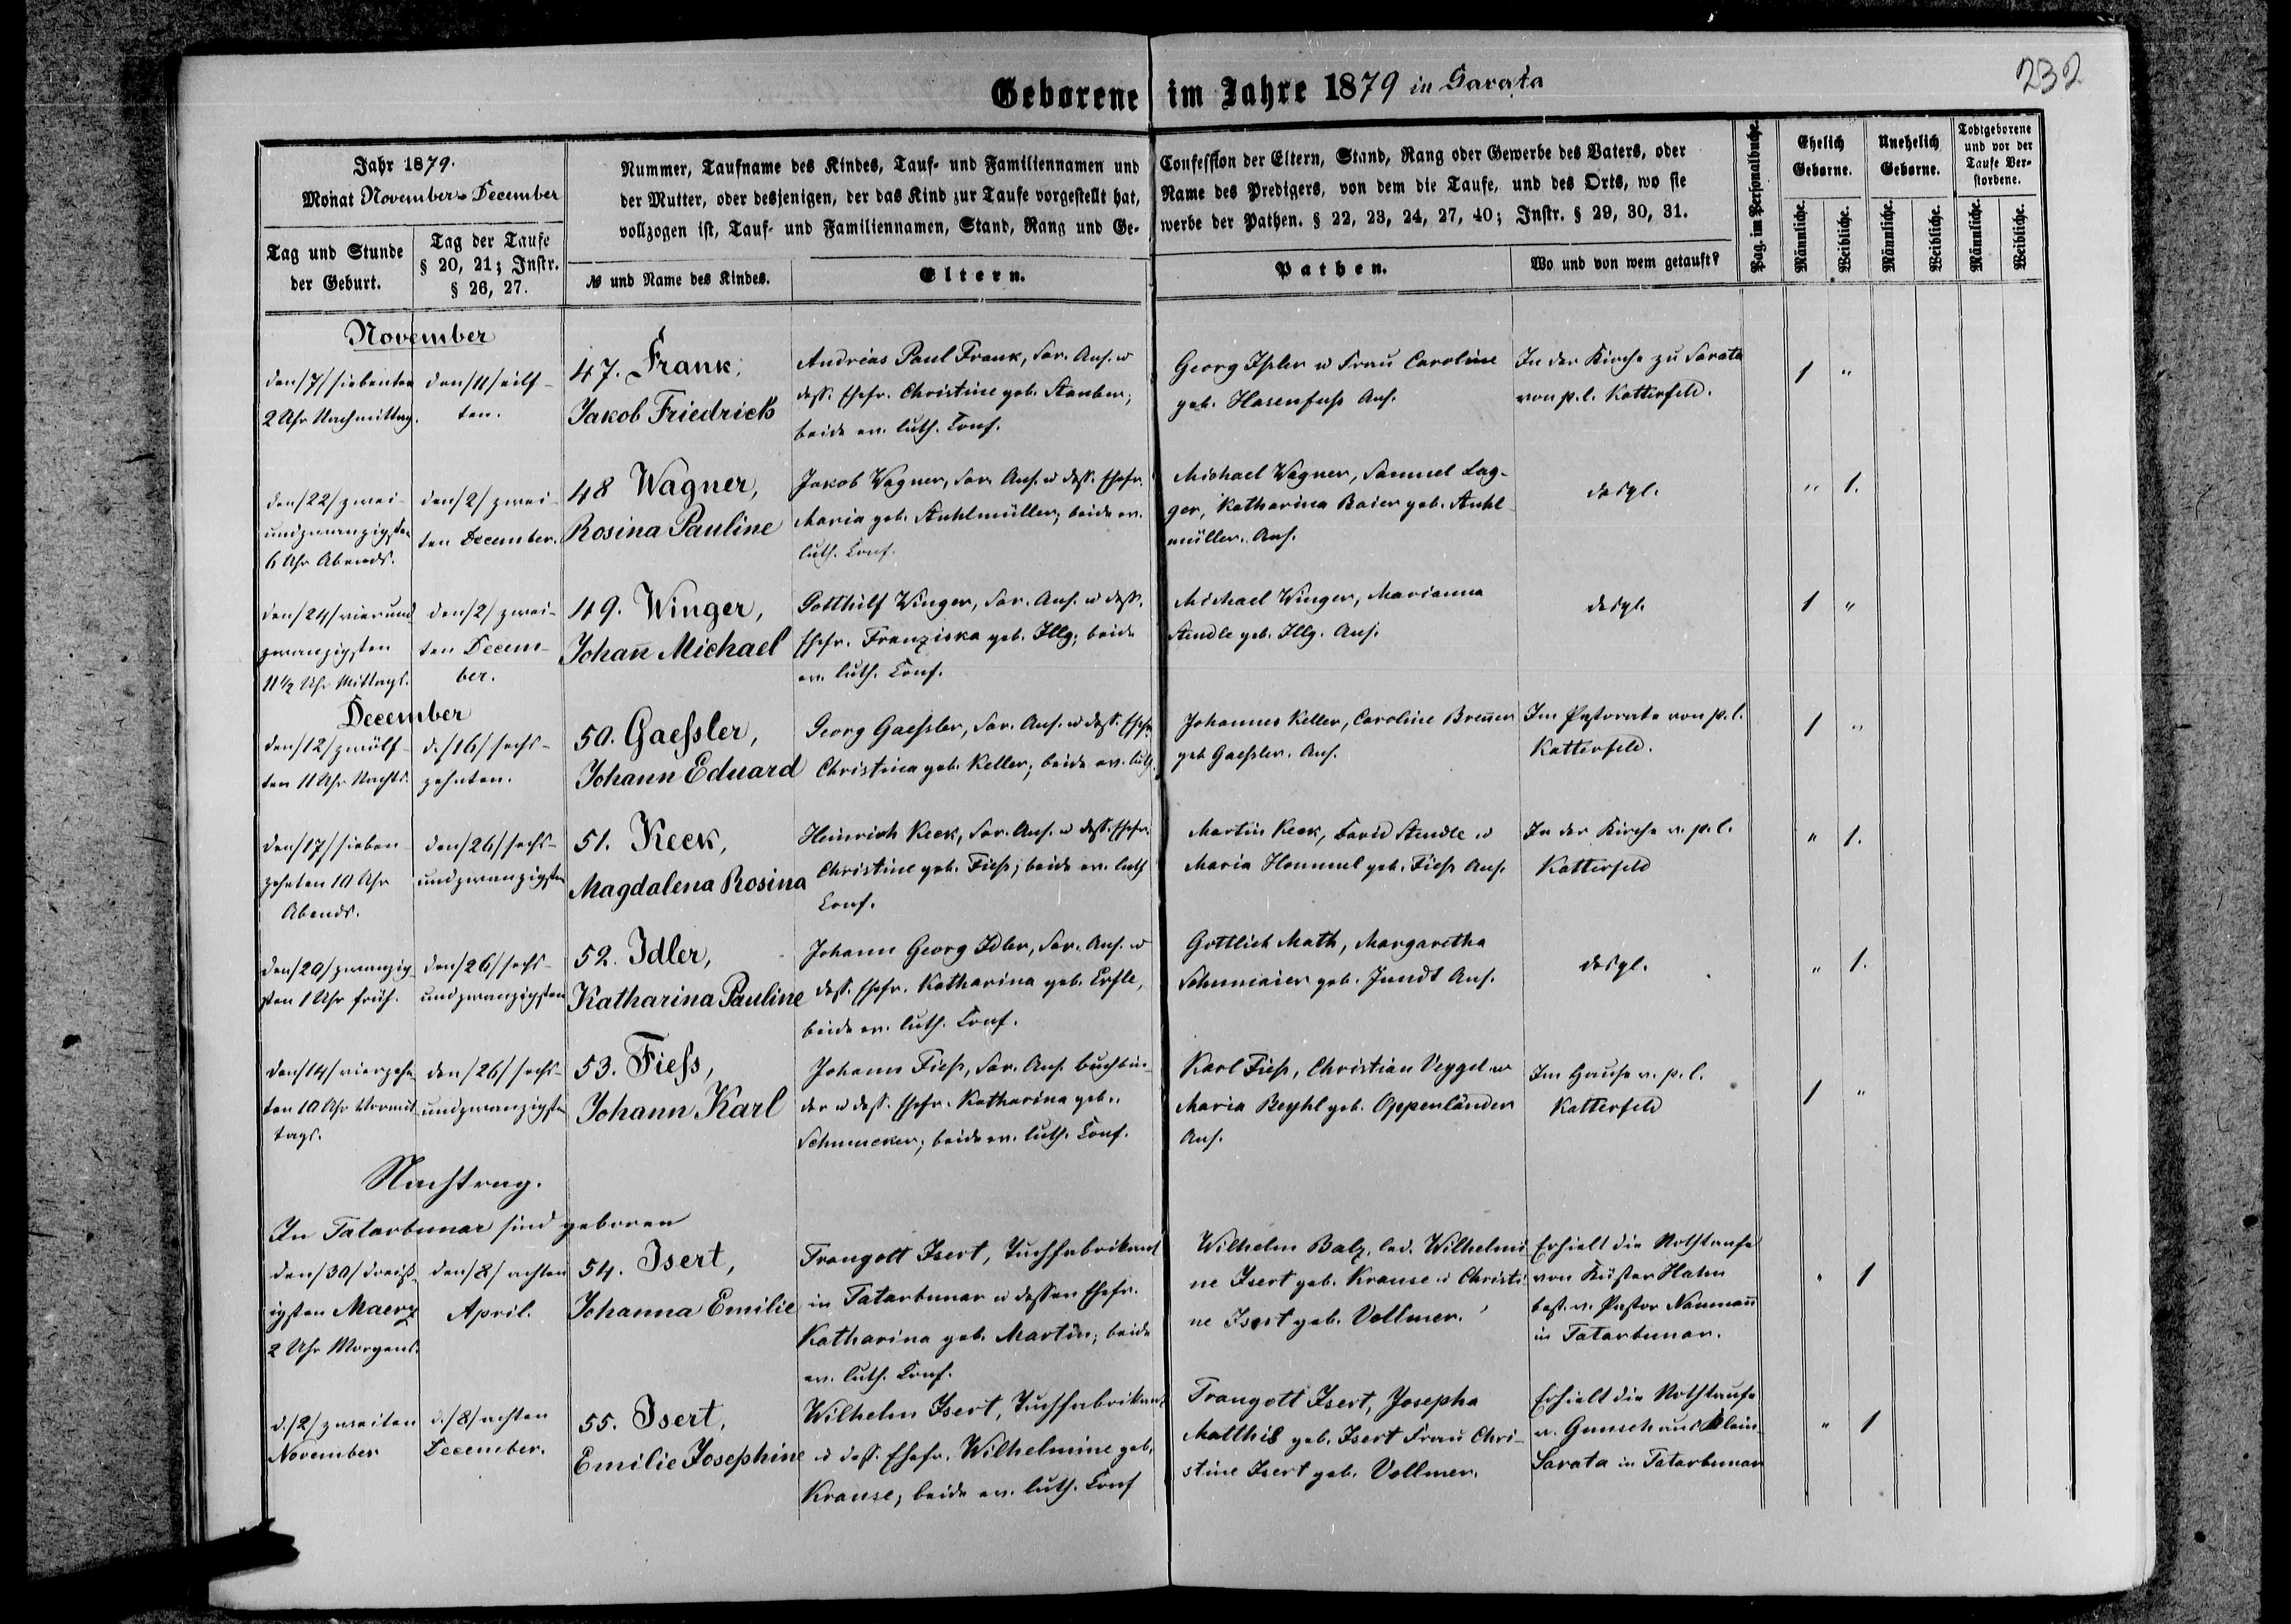 232
Geborene im Jahre 1879 in Sarata
Jahr 1879.
Monat November u December
Tag und Stunde
der Geburt.
Tag der Taufe
§ 20, 21; Instr.
§ 26, 27.
Nummer, Taufname des Kindes, Tauf- und Familiennamen und
der Mutter, oder desjenigen, der das Kind zur Taufe vorgestellt hat,
vollzogen ist, Tauf- und Familiennamen, Stand, Rang und Ge-
№ und Name des Kindes.
Eltern.
Confession der Eltern, Stand, Rang oder Gewerbe des Vaters, oder
Name des Predigers, von dem die Taufe, und des Orts, wo sie
werbe der Pathen. § 22, 23, 24, 27, 40; Instr. § 29, 30, 31.
Pathen.
Wo und von wem getauft?
Pag. im Personalbuche.
Ehelich
Geborne.
Männliche.
Weibliche.
Unehelich
Geborne.
Männliche.
Weibliche.
Todtgeborene
und vor der
Taufe Ver-
storbene.
Männliche.
Weibliche.
November
den /7/ siebenten
2 Uhr Nachmittag.
den /11/ eilf-
ten.
47. Frank,
Jakob Friedrich
Andreas Paul Frank, Sar. Ans. u
dess. Ehefr. Christine geb. Stauber,
beide ev. luth. Conf.
Georg Isler u Frau Caroline
geb. Hasenfuß Ans.
In der Kirche zu Sarata
von p. l. Katterfeld.
1 "
den /22/ zwei-
undzwanzigsten
6 Uhr Abends.
den /2/ zwei-
ten December.
48 Wagner,
Rosina Pauline
Jakob Wagner, Sar. Ans. u dess. Ehefr.
Maria geb. Stuhlmüller; beide ev.
luth. Conf.
Michael Wagner, Samuel Lag-
ger, Katharina Baier geb. Stuhl-
müller. Ans.
desgl.
" 1.
den /24/ vierund
zwanzigsten
11½ Uhr Mittags.
den /2/ zwei-
ten Decem-
ber.
49. Winger,
Johañ Michael
Gotthilf Winger, Sar. Ans. u dess.
Ehefr. Franziska geb. Illg; beide
ev. luth. Conf.
Michael Winger, Marianna
Steudle geb. Illg. Ans.
desgl.
1 "
December
den /12/ zwölf-
ten 11 Uhr Nachts.
d. /16/ sechs-
zehnten.
50. Gaessler,
Johann Eduard
Georg Gaessler, Sar. Ans. u dess. Ehefr
Christina geb. Keller; beide ev. luth.
Johannes Keller, Caroline Breñer
geb Gaessler. Ans.
Im Pastorate von p. l.
Katterfeld.
1 "
den /17/ sieben-
zehnten 10 Uhr
Abends.
den /26/ sechs-
undzwanzigsten
51. Keck,
Magdalena Rosina
Heinrich Keck, Sar. Ans. u dess. Ehefr.
Christine geb. Fiess; beide ev. luth
Conf.
Martin Keck, David Steudle u
Maria Hommel geb. Fiess Ans.
In der Kirche v. p. l.
Katterfeld
" 1.
den /20/ zwanzig-
sten 1 Uhr früh.
den /26/ sechs-
undzwanzigsten
52. Idler,
Katharina Pauline
Johann Georg Idler, Sar. Ans. u
dess. Ehefr. Katharina geb. Erfle,
beide ev. luth. Conf.
Gottlieb Math, Margaretha
geb. Jundt Ans.
desgl.
" 1.
den /14/ vierzehn
ten 10 Uhr Vormit
tags.
den /26/ sechs-
undzwanzigsten
53. Fiess,
Johann Karl
Johann Fiess, Sar. Ans. Buchbin-
der u dess. Ehefr. Katharina geb.
Schmucker; beide ev. luth. Conf.
Karl Fiess, Christian Veygel u
Maria Beyhl geb. Oppenländer
Ans.
Im Hause v. p. l.
Katterfeld
1 "
Nachtrag.
In Tatarbunar sind geboren
den /30/ dreiß-
igsten Maerz
2 Uhr Morgens.
den /8/ achten
April.
54. Isert,
Johanna Emilie
Traugott Isert, Tuchfabrikant
in Tatarbunar u dessen Ehefr.
Katharina geb. Martin; beide
ev. luth. Conf.
Wilhelm Balz, led. Wilhelmi
ne Isert geb. Krause u Christi-
ne Isert geb. Vollmer.
Erhielt die Nothtaufe
von Küster Hahn
best. v. Pastor Naumañ
in Tatarbunar.
" 1
d. /2/ zweiten
November
d. /8/ achten
December.
55. Isert,
Emilie Josephine
Wilhelm Isert, Tuchfabrikant
u dess. Ehefr. Wilhelmine geb.
Krause, beide ev. luth. Conf
Traugott Isert, Josepha
Matthis geb. Isert Frau Chri-
stine Isert geb. Vollmer.
Erhielt die Nothtaufe
v. Gunsch aus Klein
Sarata in Tatarbunar
" 1